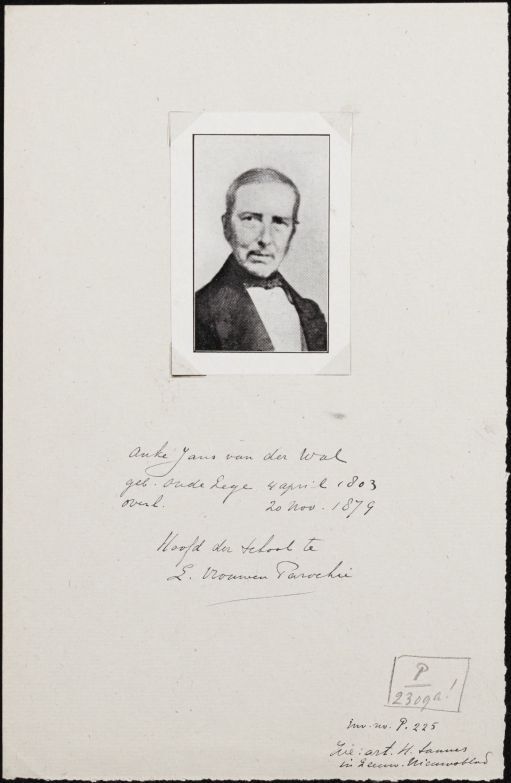 Anke Jans van der Wal
geb. Oude Lege 4 april 1803
overl. 20 Nov. 1879
Hoofd der school te
L. Vrouwen Parochie
P
2309a!
Inv. no. P. 225
Zie: art. H. Sannes
in Leeuw. Nieuwsblad